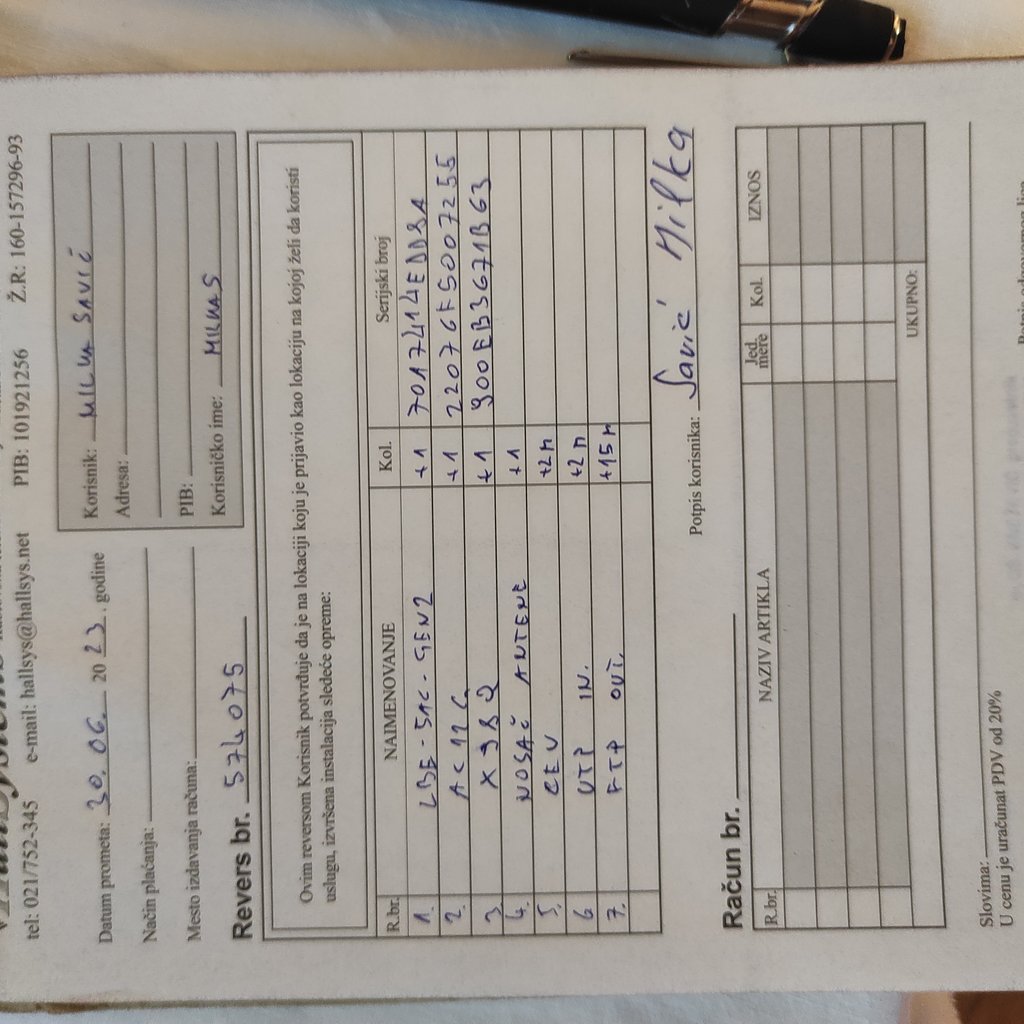 tel: 021/752-345 e-mail: hallsys@hallsys.net PIB: 101921256 Ž.R: 160-157296-93
Datum prometa: 30.06. 2023. godine
Način plaćanja:
Mesto izdavanja računa:
Korisnik: MILKA SAVIĆ
Adresa:
PIB:
Korisničko ime: MILKAS
Revers br. 574075
Ovim reversom Korisnik potvrđuje da je na lokaciji koju je prijavio kao lokaciju na kojoj želi da koristi
uslugu, izvršena instalacija sledeće opreme:
R.br. NAIMENOVANJE Kol. Serijski broj
1. LBE-5AC-GEN2 +1 7017414EDD9A
2. AC12G +1 22076KS007255
3. X98Q +1 900EB3671B63
4. NOSAČ ANTENE +1
5. CEV +2m
6 UTP IN. +2m
7. FTP OUT. +15m
Potpis korisnika: Savić Milka
Račun br.
R.br. NAZIV ARTIKLA Jed. mere Kol. IZNOS
UKUPNO:
Slovima:
U cenu je uračunat PDV od 20%